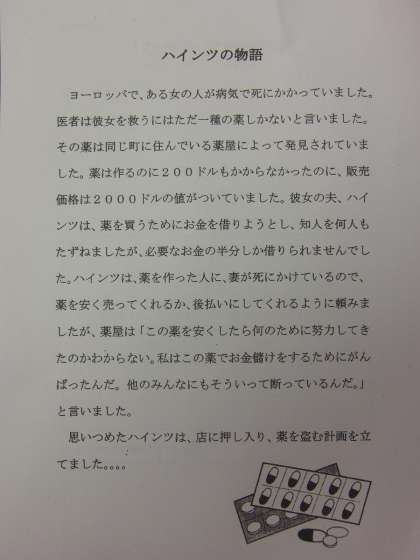 ハインツの物語
ヨーロッパで、ある女の人が病気で死にかかっていました。
医者は彼女を救うにはただ一種の薬しかないと言いました。
その薬は同じ町に住んでいる薬屋によって発見されていま
した。薬は作るのに２００ドルもかからなかったのに、販売
価格は２０００ドルの値がついていました。彼女の夫、ハイ
ンツは、薬を買うためにお金を借りようとし、知人を何人も
たずねましたが、必要なお金の半分しか借りられませんでし
た。ハインツは、薬を作った人に、妻が死にかけているので、
薬を安く売ってくれるか、後払いにしてくれるように頼みま
したが、薬屋は「この薬を安くしたら何のために努力してき
たのかわからない。私はこの薬でお金儲けをするためにがん
ばったんだ。他のみんなにもそういって断っているんだ。」
と言いました。
思いつめたハインツは、店に押し入り、薬を盗む計画を立
てました。。。。